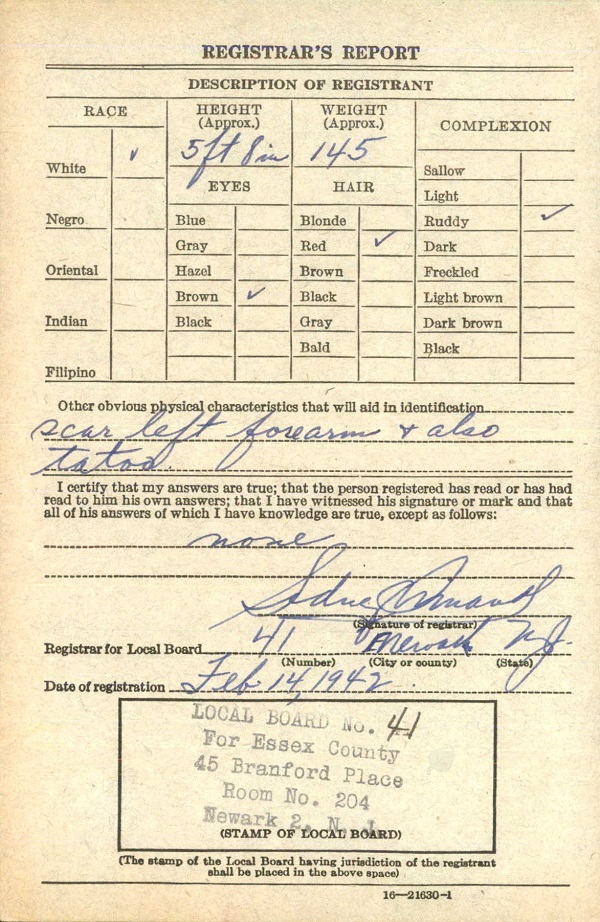 REGISTRAR'S REPORT
DESCRIPTION OF REGISTRANT
RACE
HEIGHT
(Approx.)
WEIGHT
(Approx.)
COMPLEXION
5 ft 8 in
145
White ✓
EYES
HAIR
Sallow
Light
Negro
Blue
Blonde
Ruddy ✓
Gray
Red ✓
Dark
Oriental
Hazel
Brown
Freckled
Brown ✓
Black
Light brown
Indian
Black
Gray
Dark brown
Bald
Black
Filipino
Other obvious physical characteristics that will aid in identification
scar left forearm + also
tatoo.
I certify that my answers are true; that the person registered has read or has had
read to him his own answers; that I have witnessed his signature or mark and that
all of his answers of which I have knowledge are true, except as follows:
none
(Signature of registrar)
Registrar for Local Board 41 Newark N.J.
(Number) (City or county) (State)
Date of registration Feb. 14, 1942
LOCAL BOARD No. 41
For Essex County
45 Branford Place
Room No. 204
Newark 2, N. J.
(STAMP OF LOCAL BOARD)
(The stamp of the Local Board having jurisdiction of the registrant
shall be placed in the above space)
16—21630-1